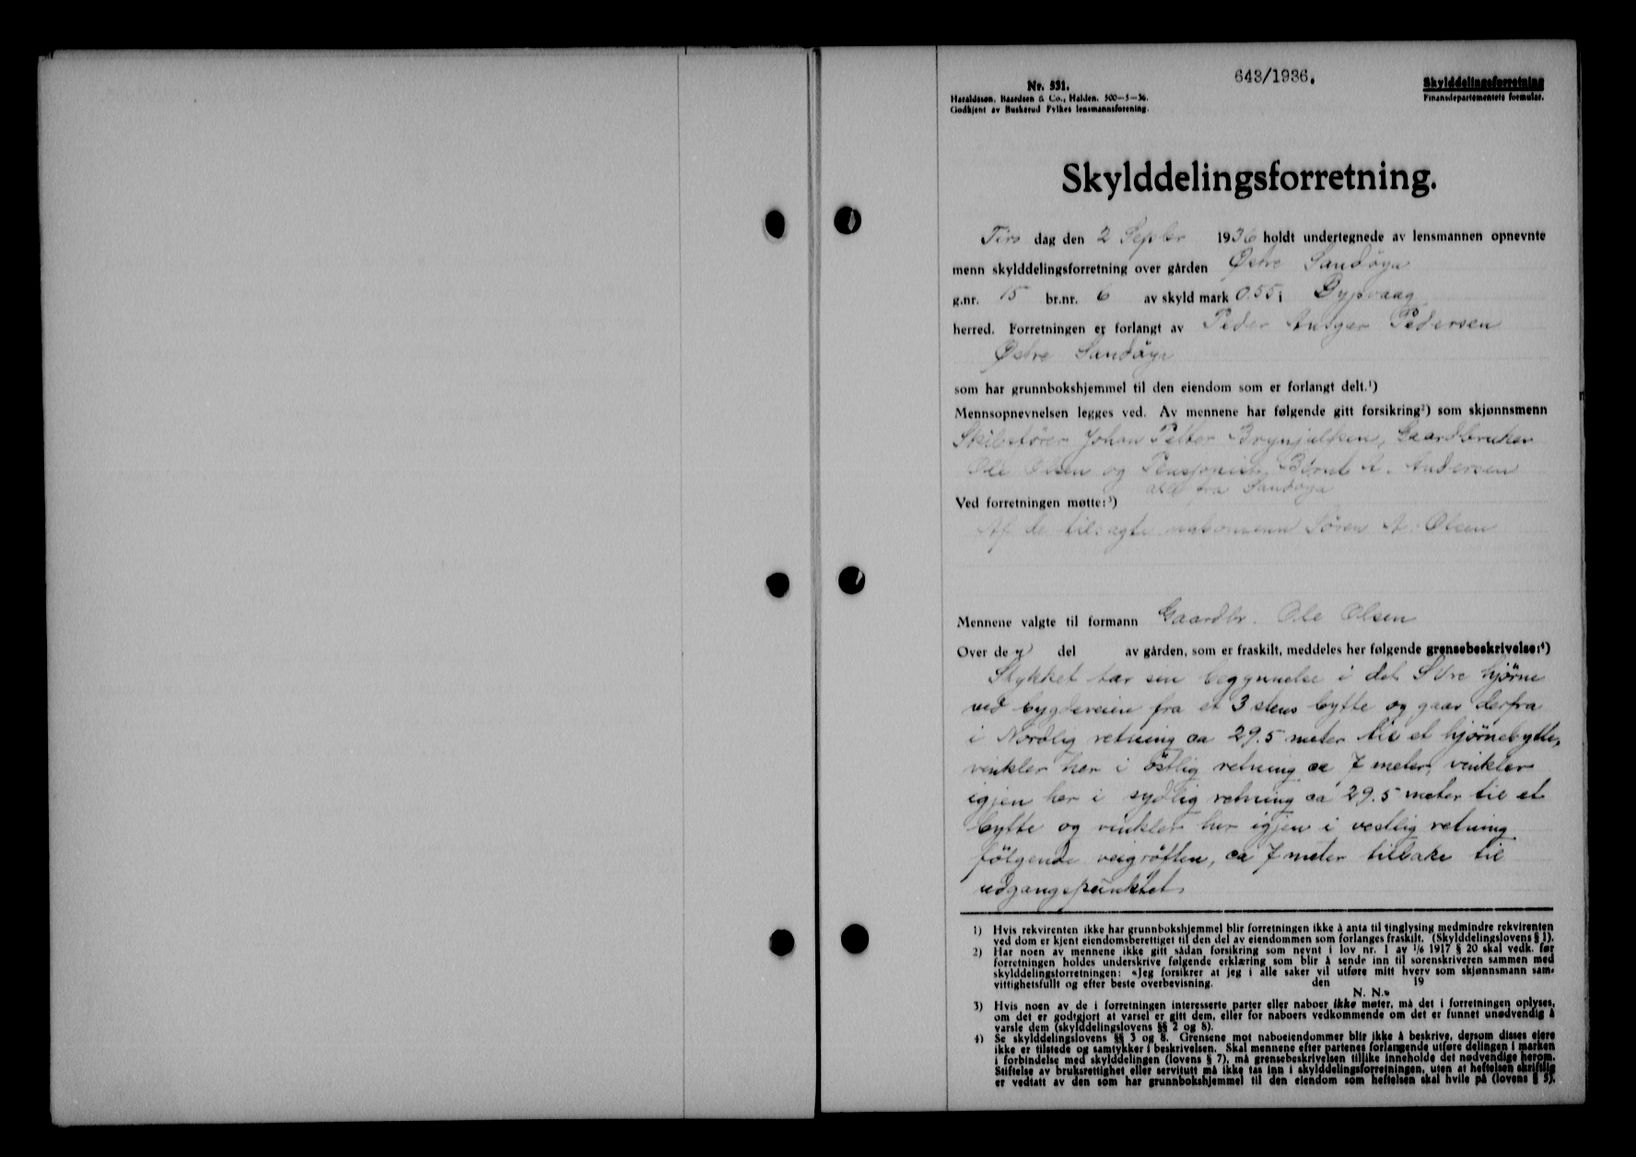 Nr. 531.
Haraldssøn, Baardsen & Co., Halden. 500—5—36.
Godkjent av Buskerud Fylkes lensmannsforening.
643/1936.
Skylddelingsforretning
Finansdepartementets formular.
Skylddelingsforretning.
Tirs dag den 2 Septbr 1936 holdt undertegnede av lensmannen opnevnte
menn skylddelingsforretning over gården Østre Sandøya
g.nr. 15 br.nr. 6 av skyld mark 0.55 i Dypvaag
herred. Forretningen er forlangt av Peder Ansgar Pedersen
Østre Sandøya
som har grunnbokshjemmel til den eiendom som er forlangt delt.¹)
Mennsopnevnelsen legges ved. Av mennene har følgende gitt forsikring²) som skjønnsmenn
Skibsfører Johan Petter Brynjulsen, Gaardbruker
Ole Olsen og Pensjonist Bernt A. Andersen
alle fra Sandøya
Ved forretningen møtte:³)
Af de tilsagte nabomenn Søren A. Olsen
Mennene valgte til formann Gaardbr. Ole Olsen
Over de n del av gården, som er fraskilt, meddeles her følgende grensebeskrivelse:⁴)
Stykket tar sin begynnelse i det S Vre hjørne
ved bygdeveien fra et 3 stens bytte og gaar derfra
i Nordlig retning ca 29.5 meter til et hjørnebytte,
vinkler her i østlig retning ca 7 meter, vinkler
igjen her i sydlig retning ca 29.5 meter til et
bytte og vinkler her igjen i vestlig retning
følgende veigrøften, ca 7 meter tilbake til
udgangspunktet
1) Hvis rekvirenten ikke har grunnbokshjemmel blir forretningen ikke å anta til tinglysing medmindre rekvirenten
ved dom er kjent eiendomsberettiget til den del av eiendommen som forlanges fraskilt. (Skylddelingslovens § 1).
2) Har noen av mennene ikke gitt sådan forsikring som nevnt i lov nr. 1 av 1/6 1917 § 20 skal vedk. før
forretningen holdes underskrive følgende erklæring som blir å sende inn til sorenskriveren sammen med
skylddelingsforretningen: «Jeg forsikrer at jeg i alle saker vil utføre mitt hverv som skjønnsmann sam-
vittighetsfullt og efter beste overbevisning. den 19
N. N.»
3) Hvis noen av de i forretningen interesserte parter eller naboer ikke møter, må det i forretningen oplyses,
om det er godtgjort at varsel er gitt dem, eller for naboers vedkommende om det er funnet unødvendig å
varsle dem (skylddelingslovens §§ 2 og 8).
4) Se skylddelingslovens §§ 3 og 8. Grensene mot naboeiendommer blir ikke å beskrive, dersom disses eiere
ikke er tilstede og samtykker i beskrivelsen. Skal mennene efter partenes forlangende utføre delingen i marken
i forbindelse med skylddelingen (lovens § 7), må grensebeskrivelsen tillike inneholde det nødvendige herom.
Stiftelse av bruksrettighet eller servitutt må ikke tas inn i skylddelingsforretningen, uten at heftelsen skriftlig
er vedtatt av den som har grunnbokshjemmel til den eiendom som heftelsen skal hvile på (lovens § 5).